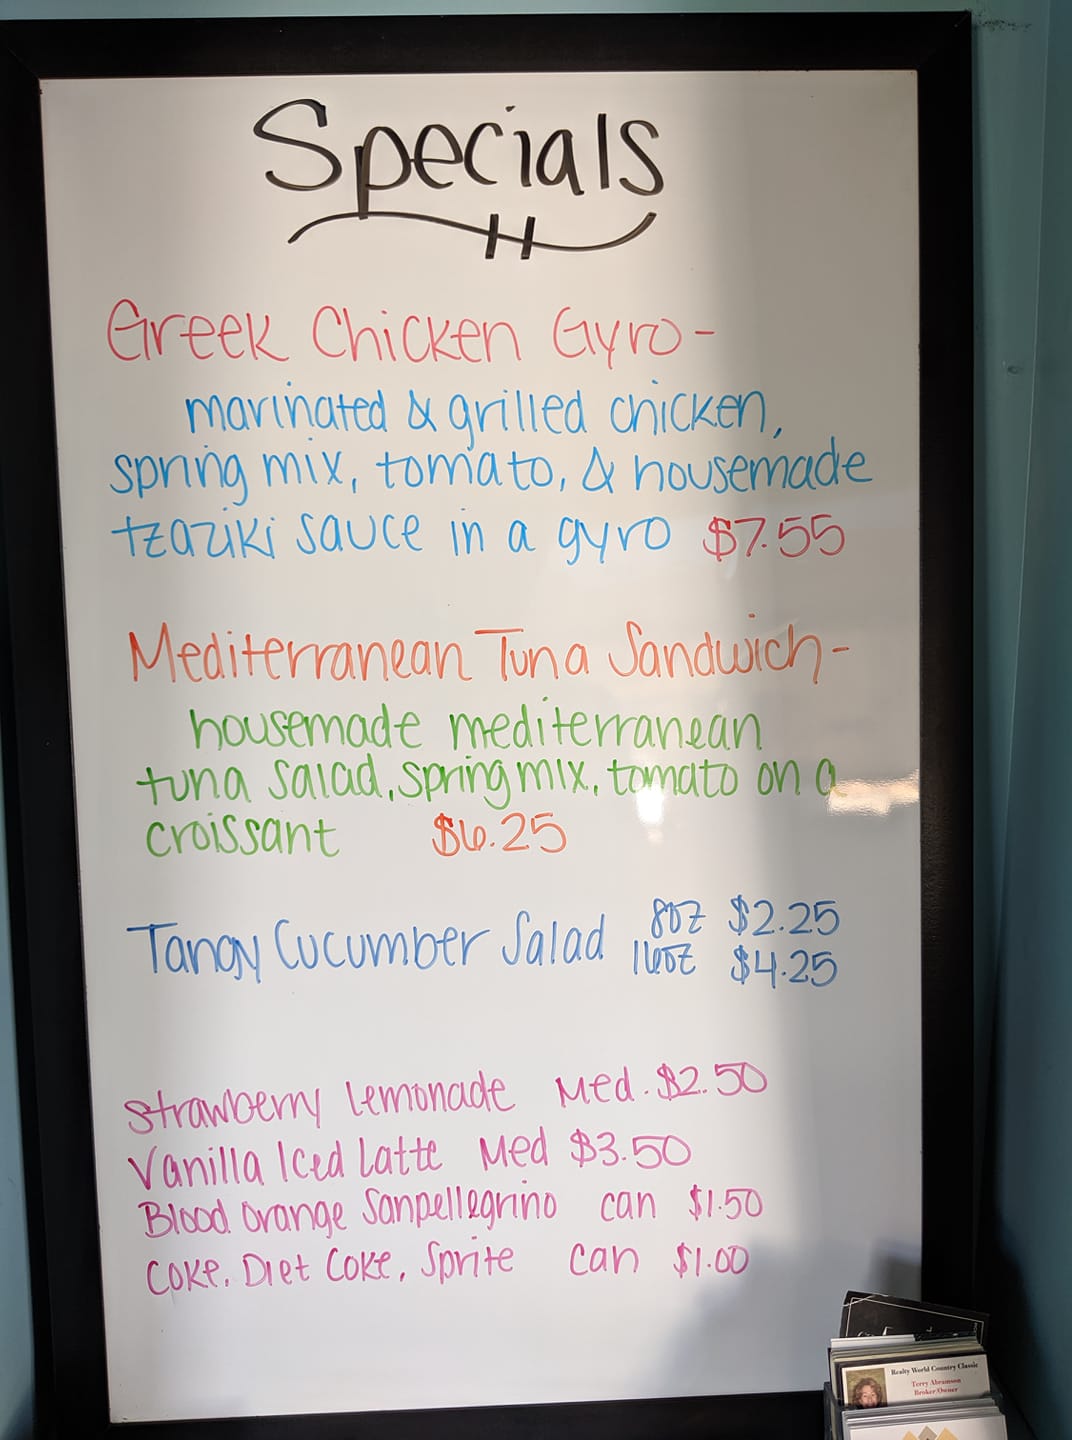 Specials
Greek Chicken Gyro-
marinated & grilled chicken,
spring mix, tomato, & housemade
tzaziki sauce in a gyro $7.55
Mediterranean Tuna Sandwich-
housemade mediterranean
tuna salad, spring mix, tomato on a
croissant $6.25
Tangy Cucumber Salad 8oz $2.25
16oz $4.25
Strawberry Lemonade Med. $2.50
Vanilla Iced Latte Med $3.50
Blood Orange Sanpellegrino can $1.50
Coke, Diet Coke, Sprite can $1.00
Realty World Country Classic
Terry Abramson
Broker/Owner